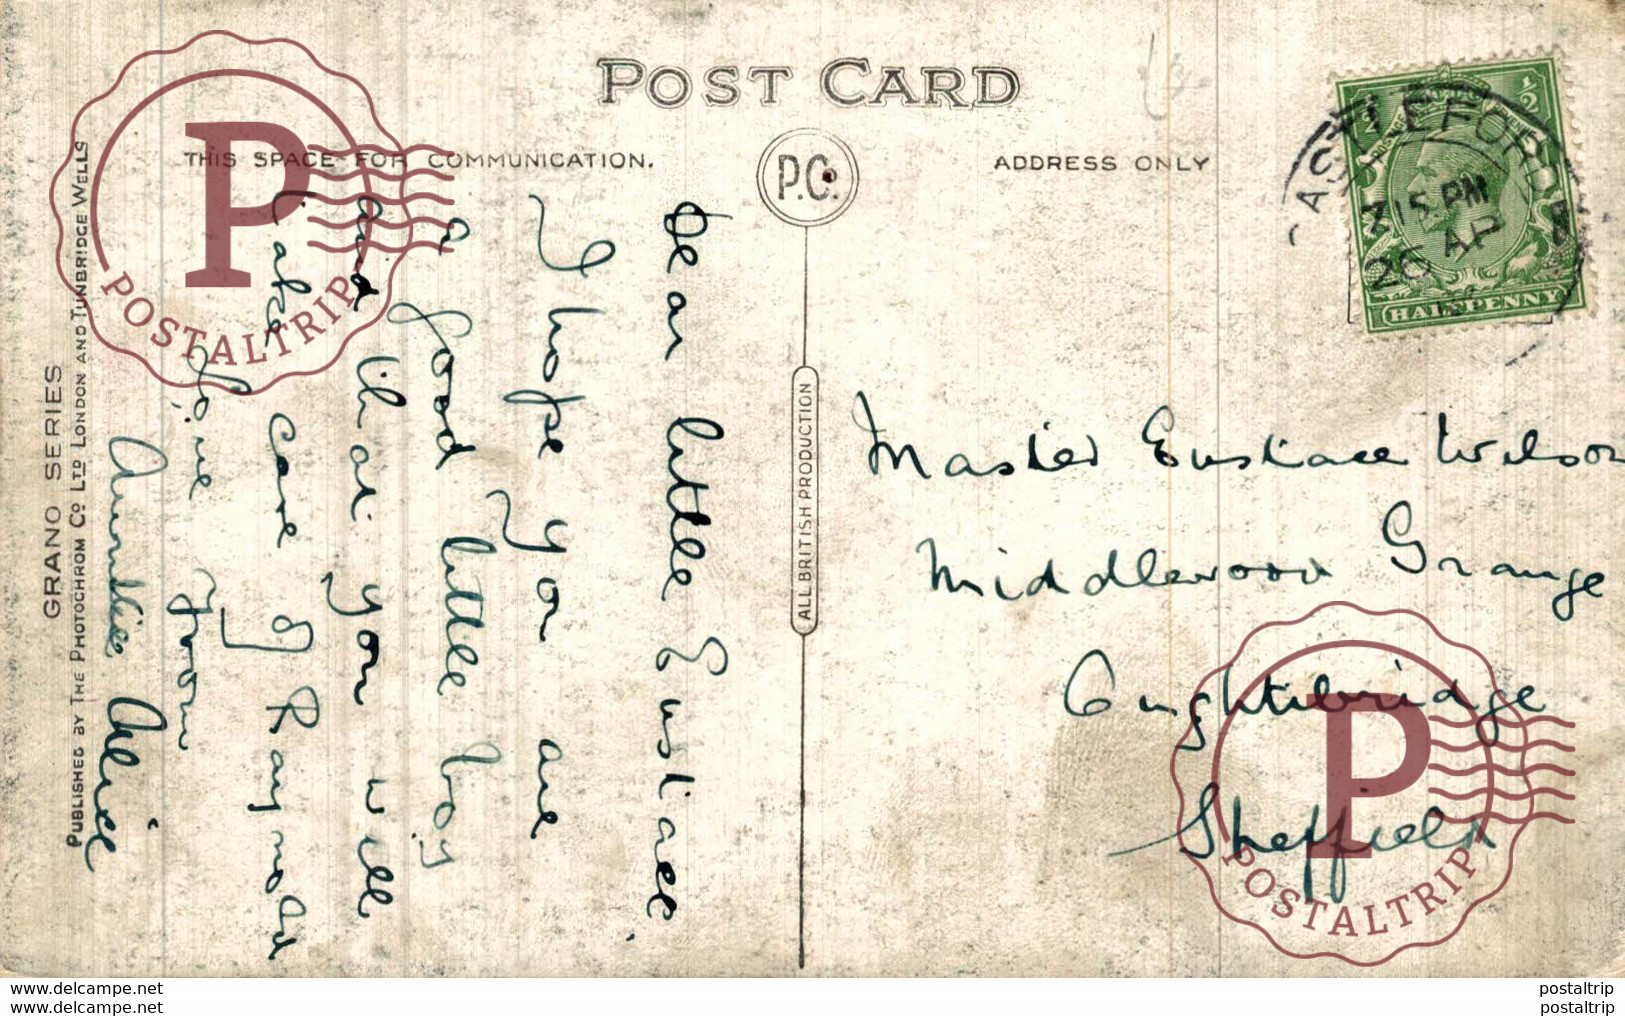 POST CARD
THIS SPACE FOR COMMUNICATION.
P.C.
ADDRESS ONLY
CASTLEFORD
3 15 PM
26 AP
½
HALFPENNY
Dear little Eustace,
I hope you are
a good little boy
and that you will
take care of Raymond
Love from
Auntie Alice
Master Eustace Wilson
Middlewood Grange
Oughtibridge
Sheffield
ALL BRITISH PRODUCTION
GRANO SERIES
PUBLISHED BY THE PHOTOCHROM CO LTD LONDON AND TUNBRIDGE WELLS
P
POSTALTRIP
P
POSTALTRIP
www.delcampe.net
postaltrip
www.delcampe.net
postaltrip